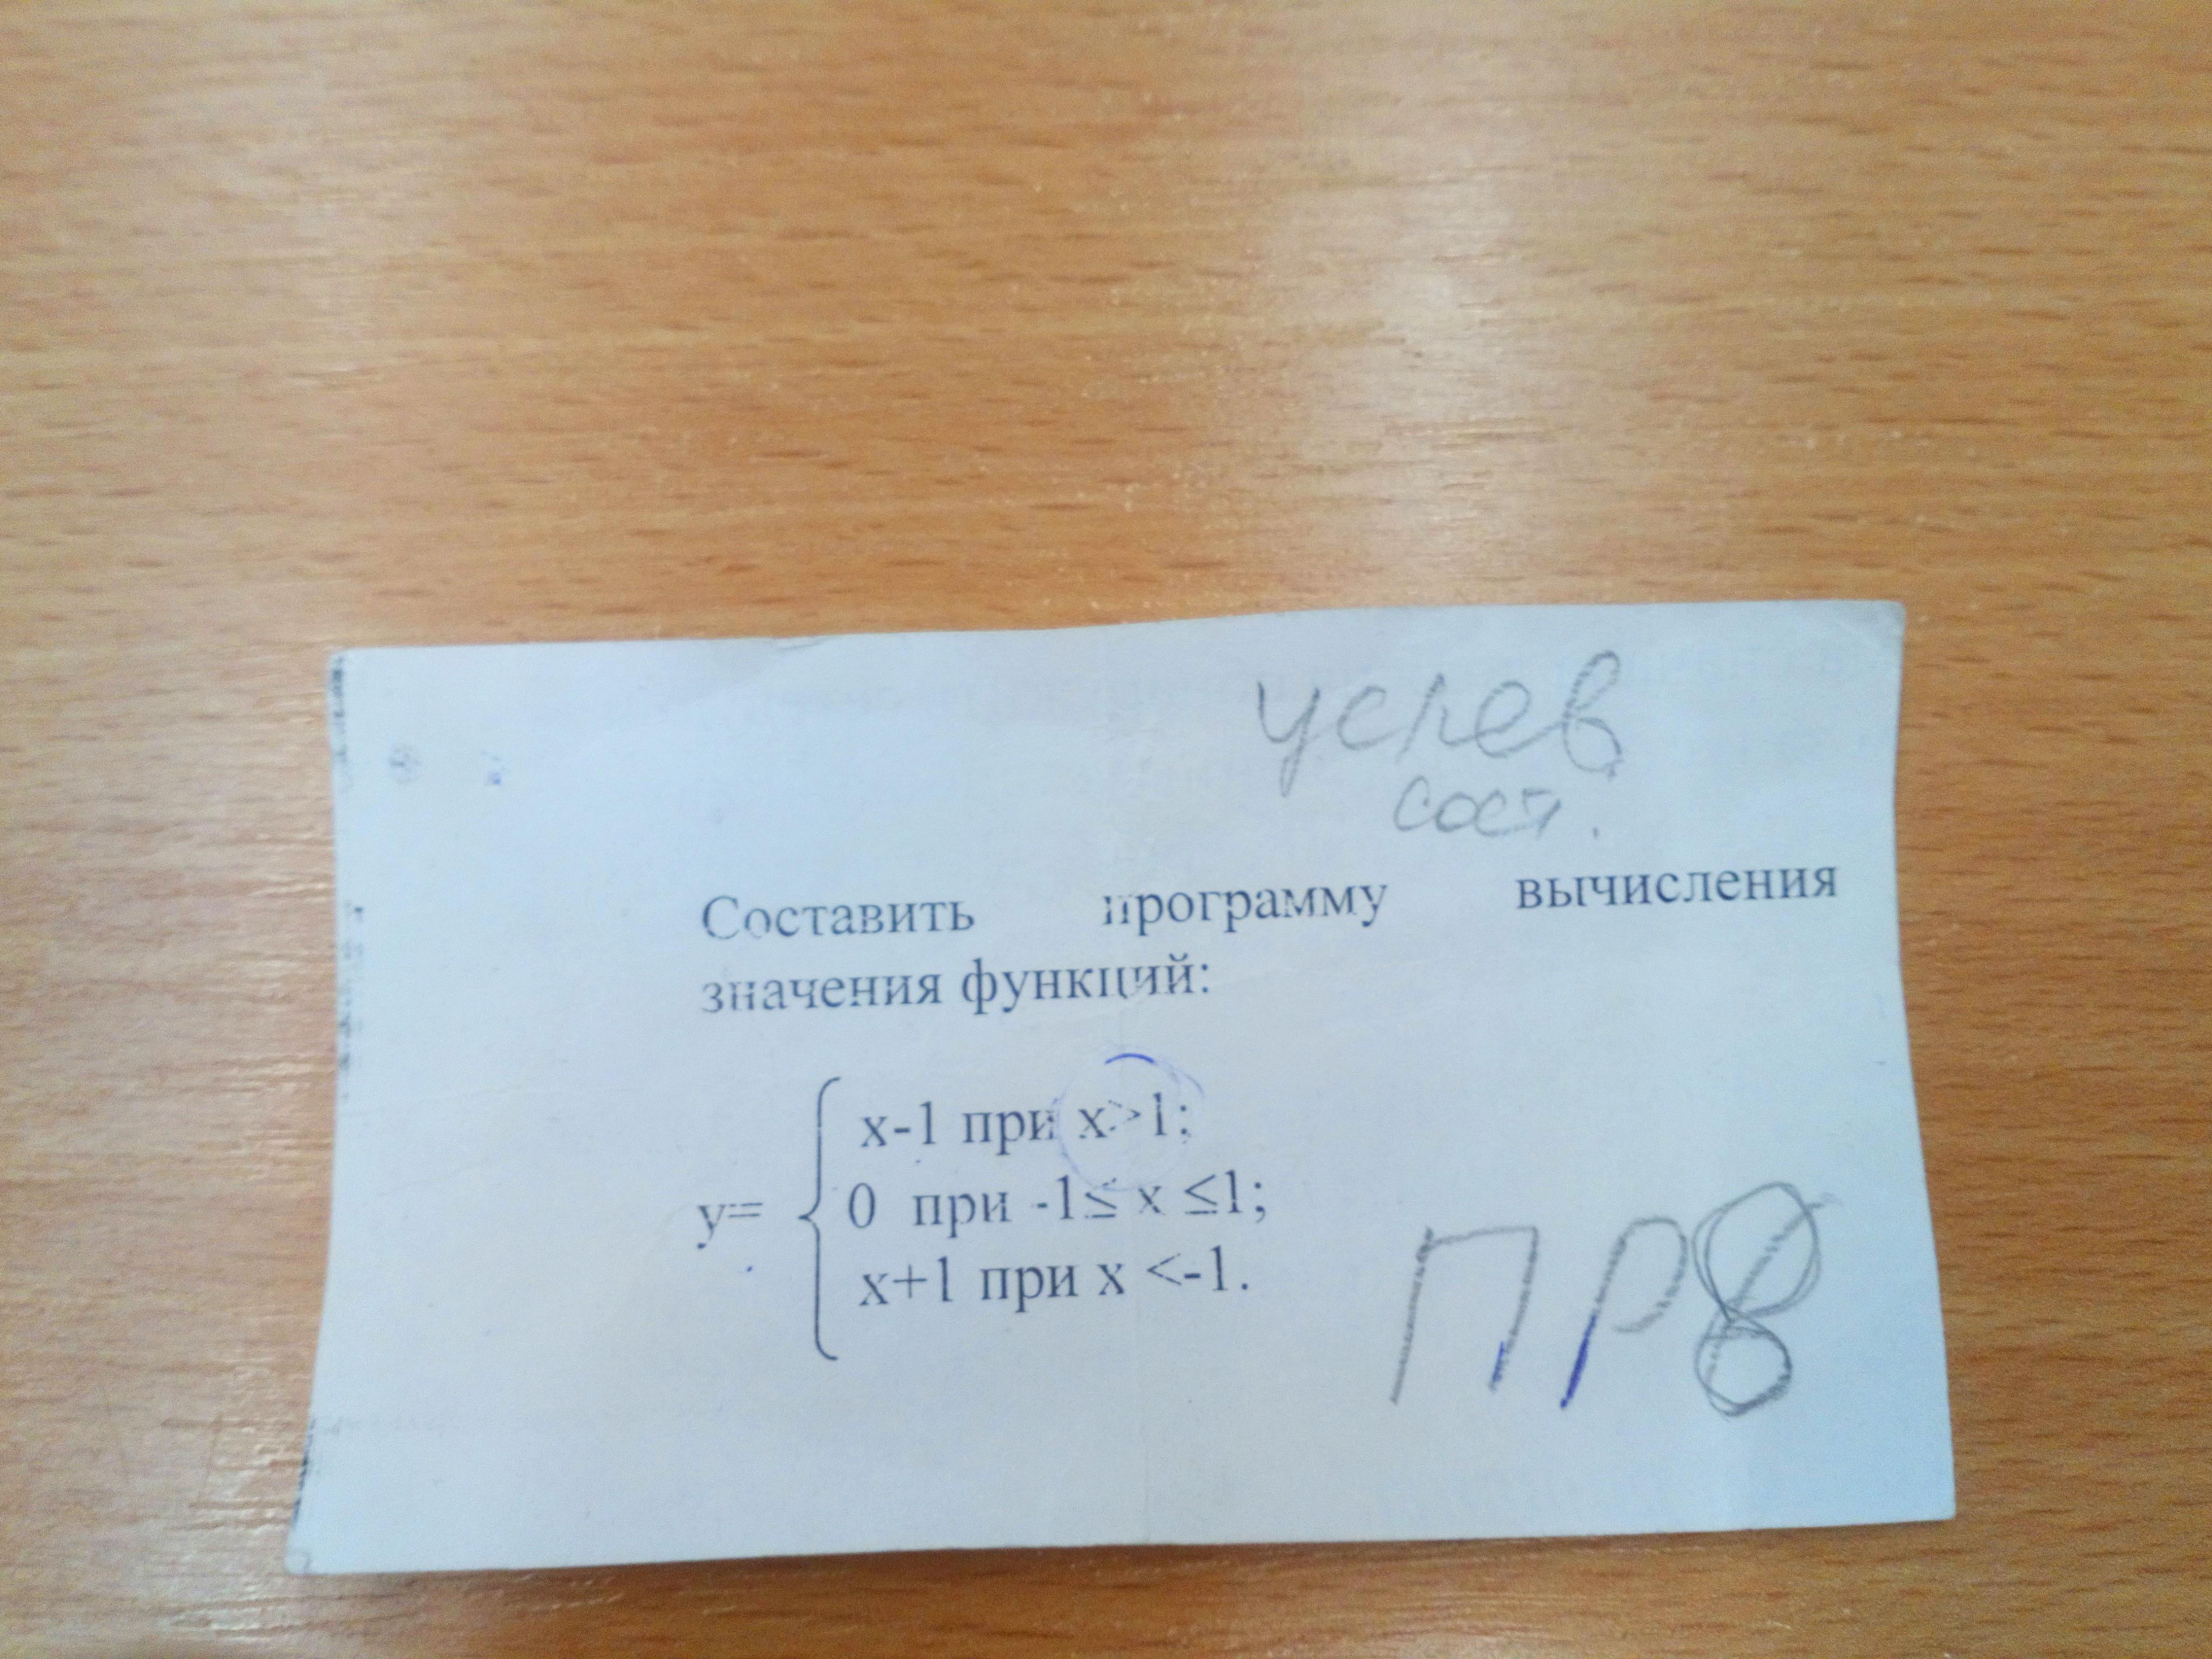 услев
сост.
Составить программу вычисления
значения функций:
x-1 при x>1;
y= 0 при -1≤ x ≤1;
x+1 при x <-1.
ПР8